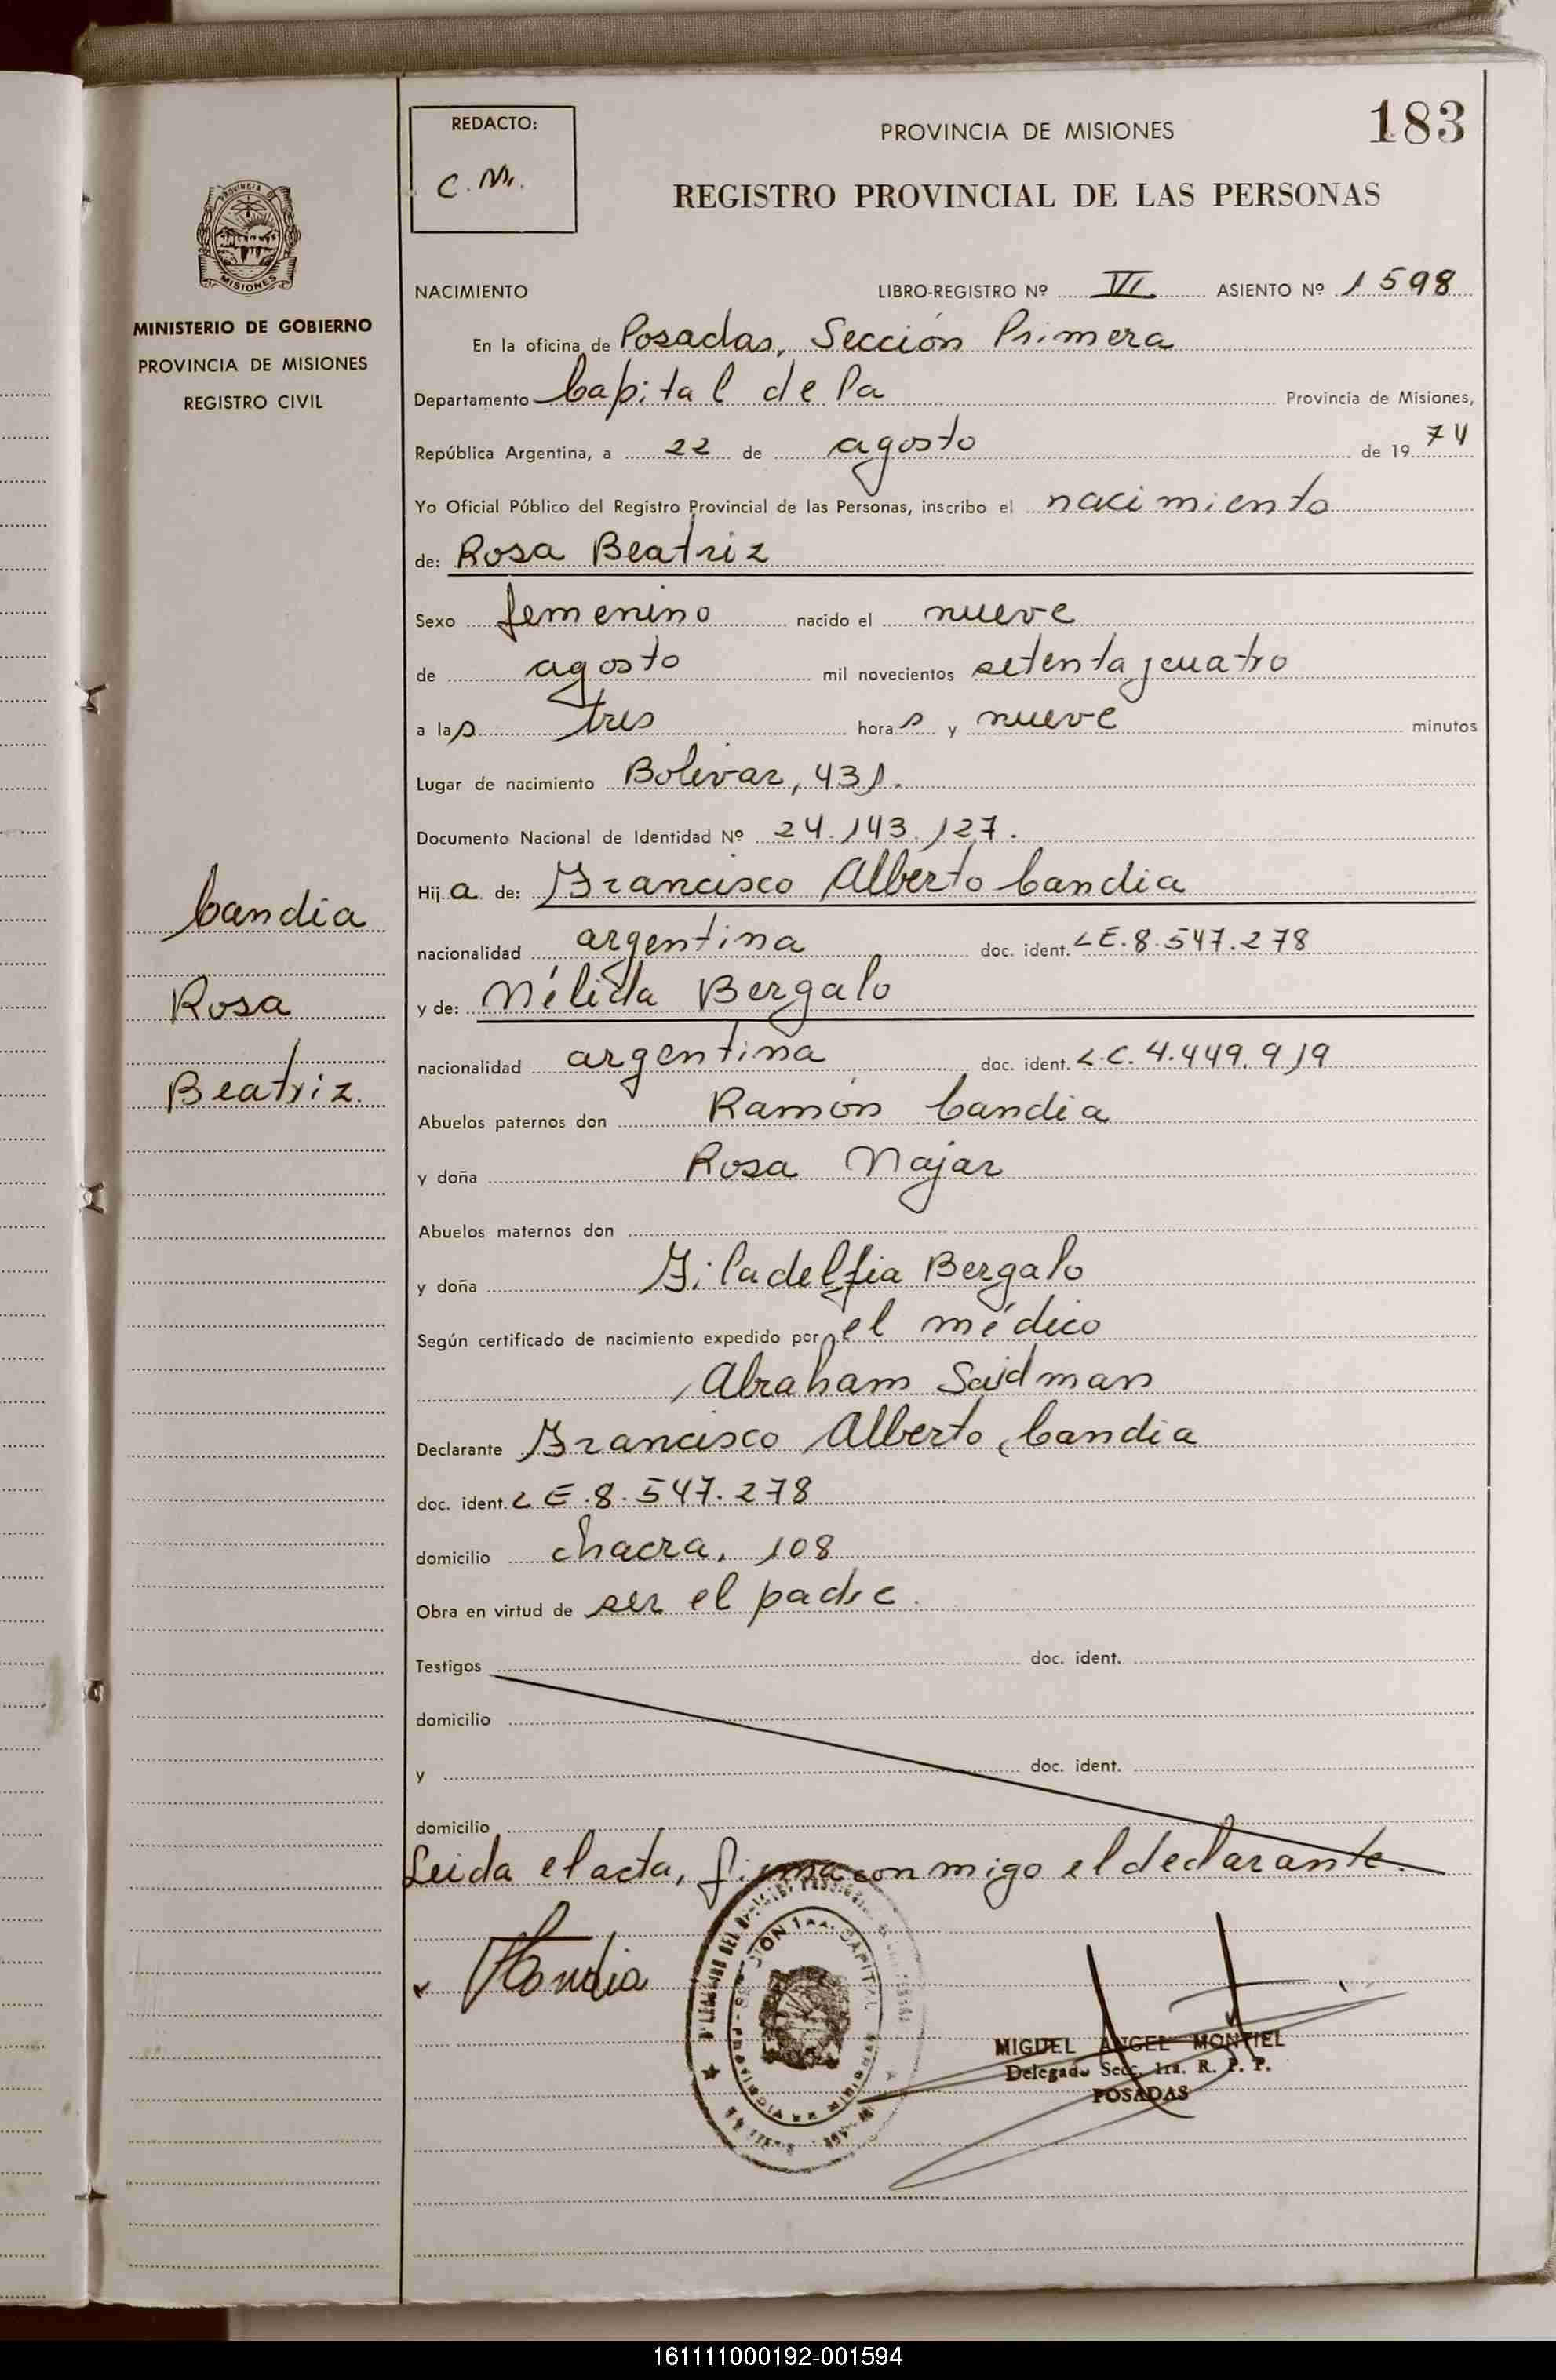 183
REDACTO:
C. M.
PROVINCIA DE MISIONES
REGISTRO PROVINCIAL DE LAS PERSONAS
PROVINCIA DE
MISIONES
MINISTERIO DE GOBIERNO
PROVINCIA DE MISIONES
REGISTRO CIVIL
NACIMIENTO LIBRO-REGISTRO Nº VI ASIENTO Nº 1598
En la oficina de Posadas, Sección Primera
Departamento Capital de la Provincia de Misiones,
República Argentina, a 22 de agosto de 1974
Yo Oficial Público del Registro Provincial de las Personas, inscribo el nacimiento
de: Rosa Beatriz
Sexo femenino nacido el nueve
de agosto mil novecientos setenta y cuatro
a las tres horas y nueve minutos
Lugar de nacimiento Bolivar, 431.
Documento Nacional de Identidad Nº 24.143.127.
Hija de: Francisco Alberto Candia
nacionalidad argentina doc. ident. LE.8.547.278
y de: Nélida Bergalo
nacionalidad argentina doc. ident. L.C.4.449.919
Abuelos paternos don Ramón Candia
y doña Rosa Najar
Abuelos maternos don
y doña Filadelfia Bergalo
Según certificado de nacimiento expedido por el médico
Abraham Saidman
Declarante Francisco Alberto Candia
doc. ident. LE.8.547.278
domicilio chacra, 108
Obra en virtud de ser el padre.
Testigos doc. ident.
domicilio
y doc. ident.
domicilio
Leida el acta, firma conmigo el declarante.
Candia
Rosa
Beatriz.
MIGUEL ANGEL MONTIEL
Delegado Secc. 1ra. R. P. P.
POSADAS
161111000192-001594